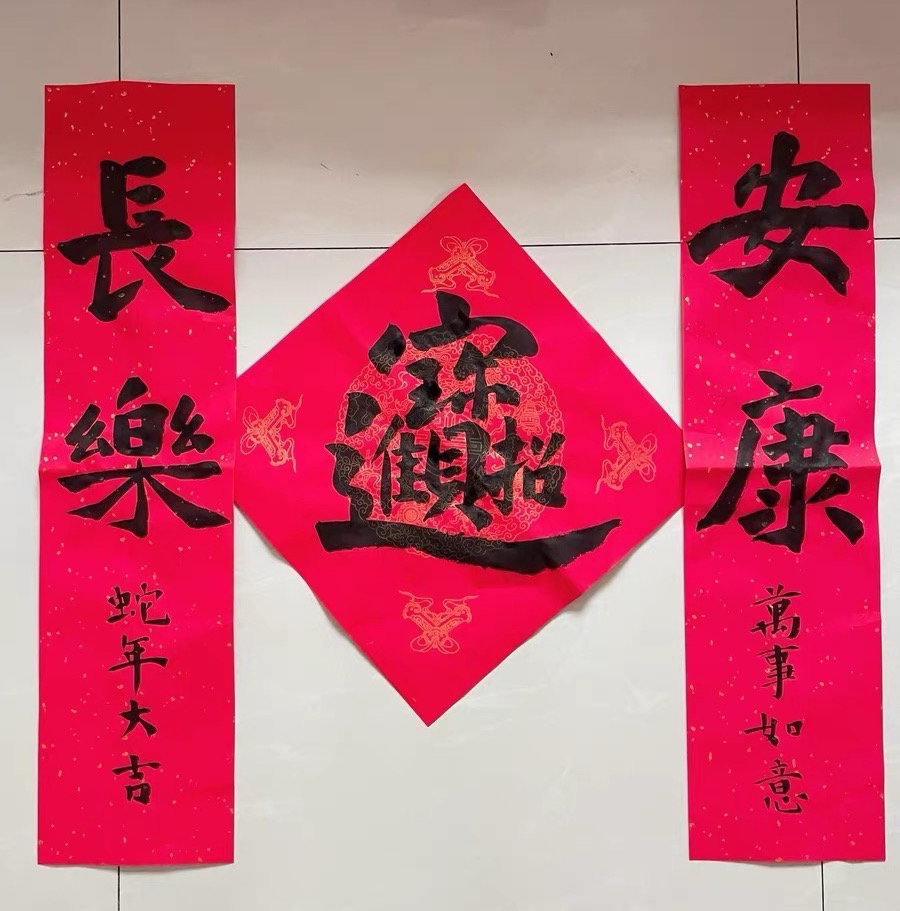 安康
萬事如意
招財進寶
長樂
蛇年大吉